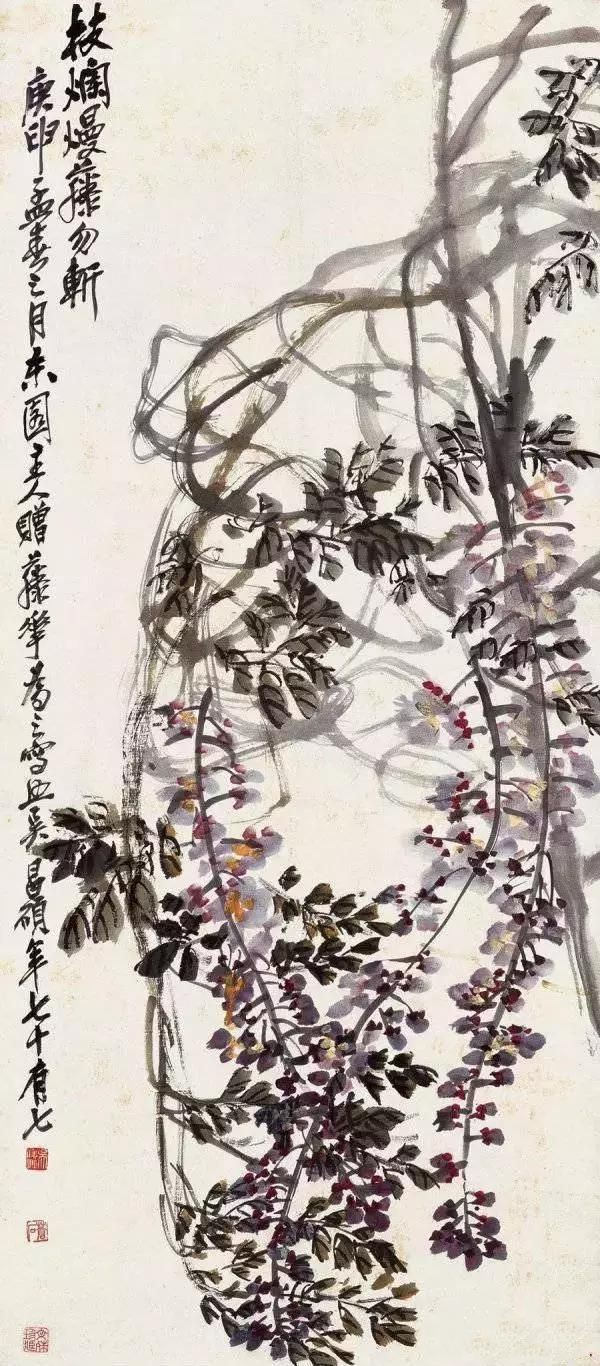 枝爛熳藤勿斬
庚申孟春之月朱園主人贈藤華為之寫照吳昌碩年七十有七